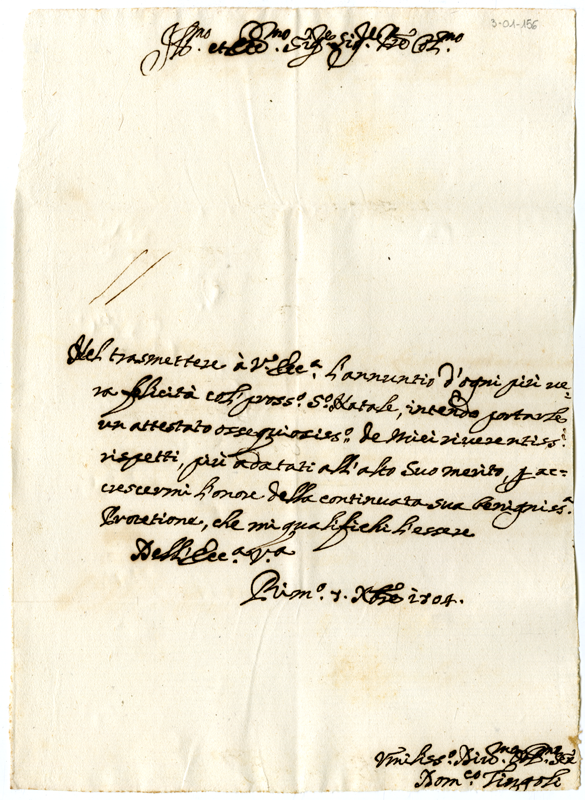 3-01-156
Ill.mo et Ecc.mo Sig.re Sig.re P.rone Col.mo
Nel trasmettere à V.ra Ecc.a l'annuntio d'ogni più ue-
ra felicità col pross.o S.o Natale, intendo portarle
un attestato ossequiosiss.o de Miei riuerentiss.i
rispetti, più adatati all'alto Suo merito, p ac-
crescermi l'honore della continuata sua benigniss.a
Protetione, che mi qualifichi l'essere
Dell'Ecc.a V.a
Xbre 1704.
Vmiliss.o Diuo.mo Ser.
Dom.co